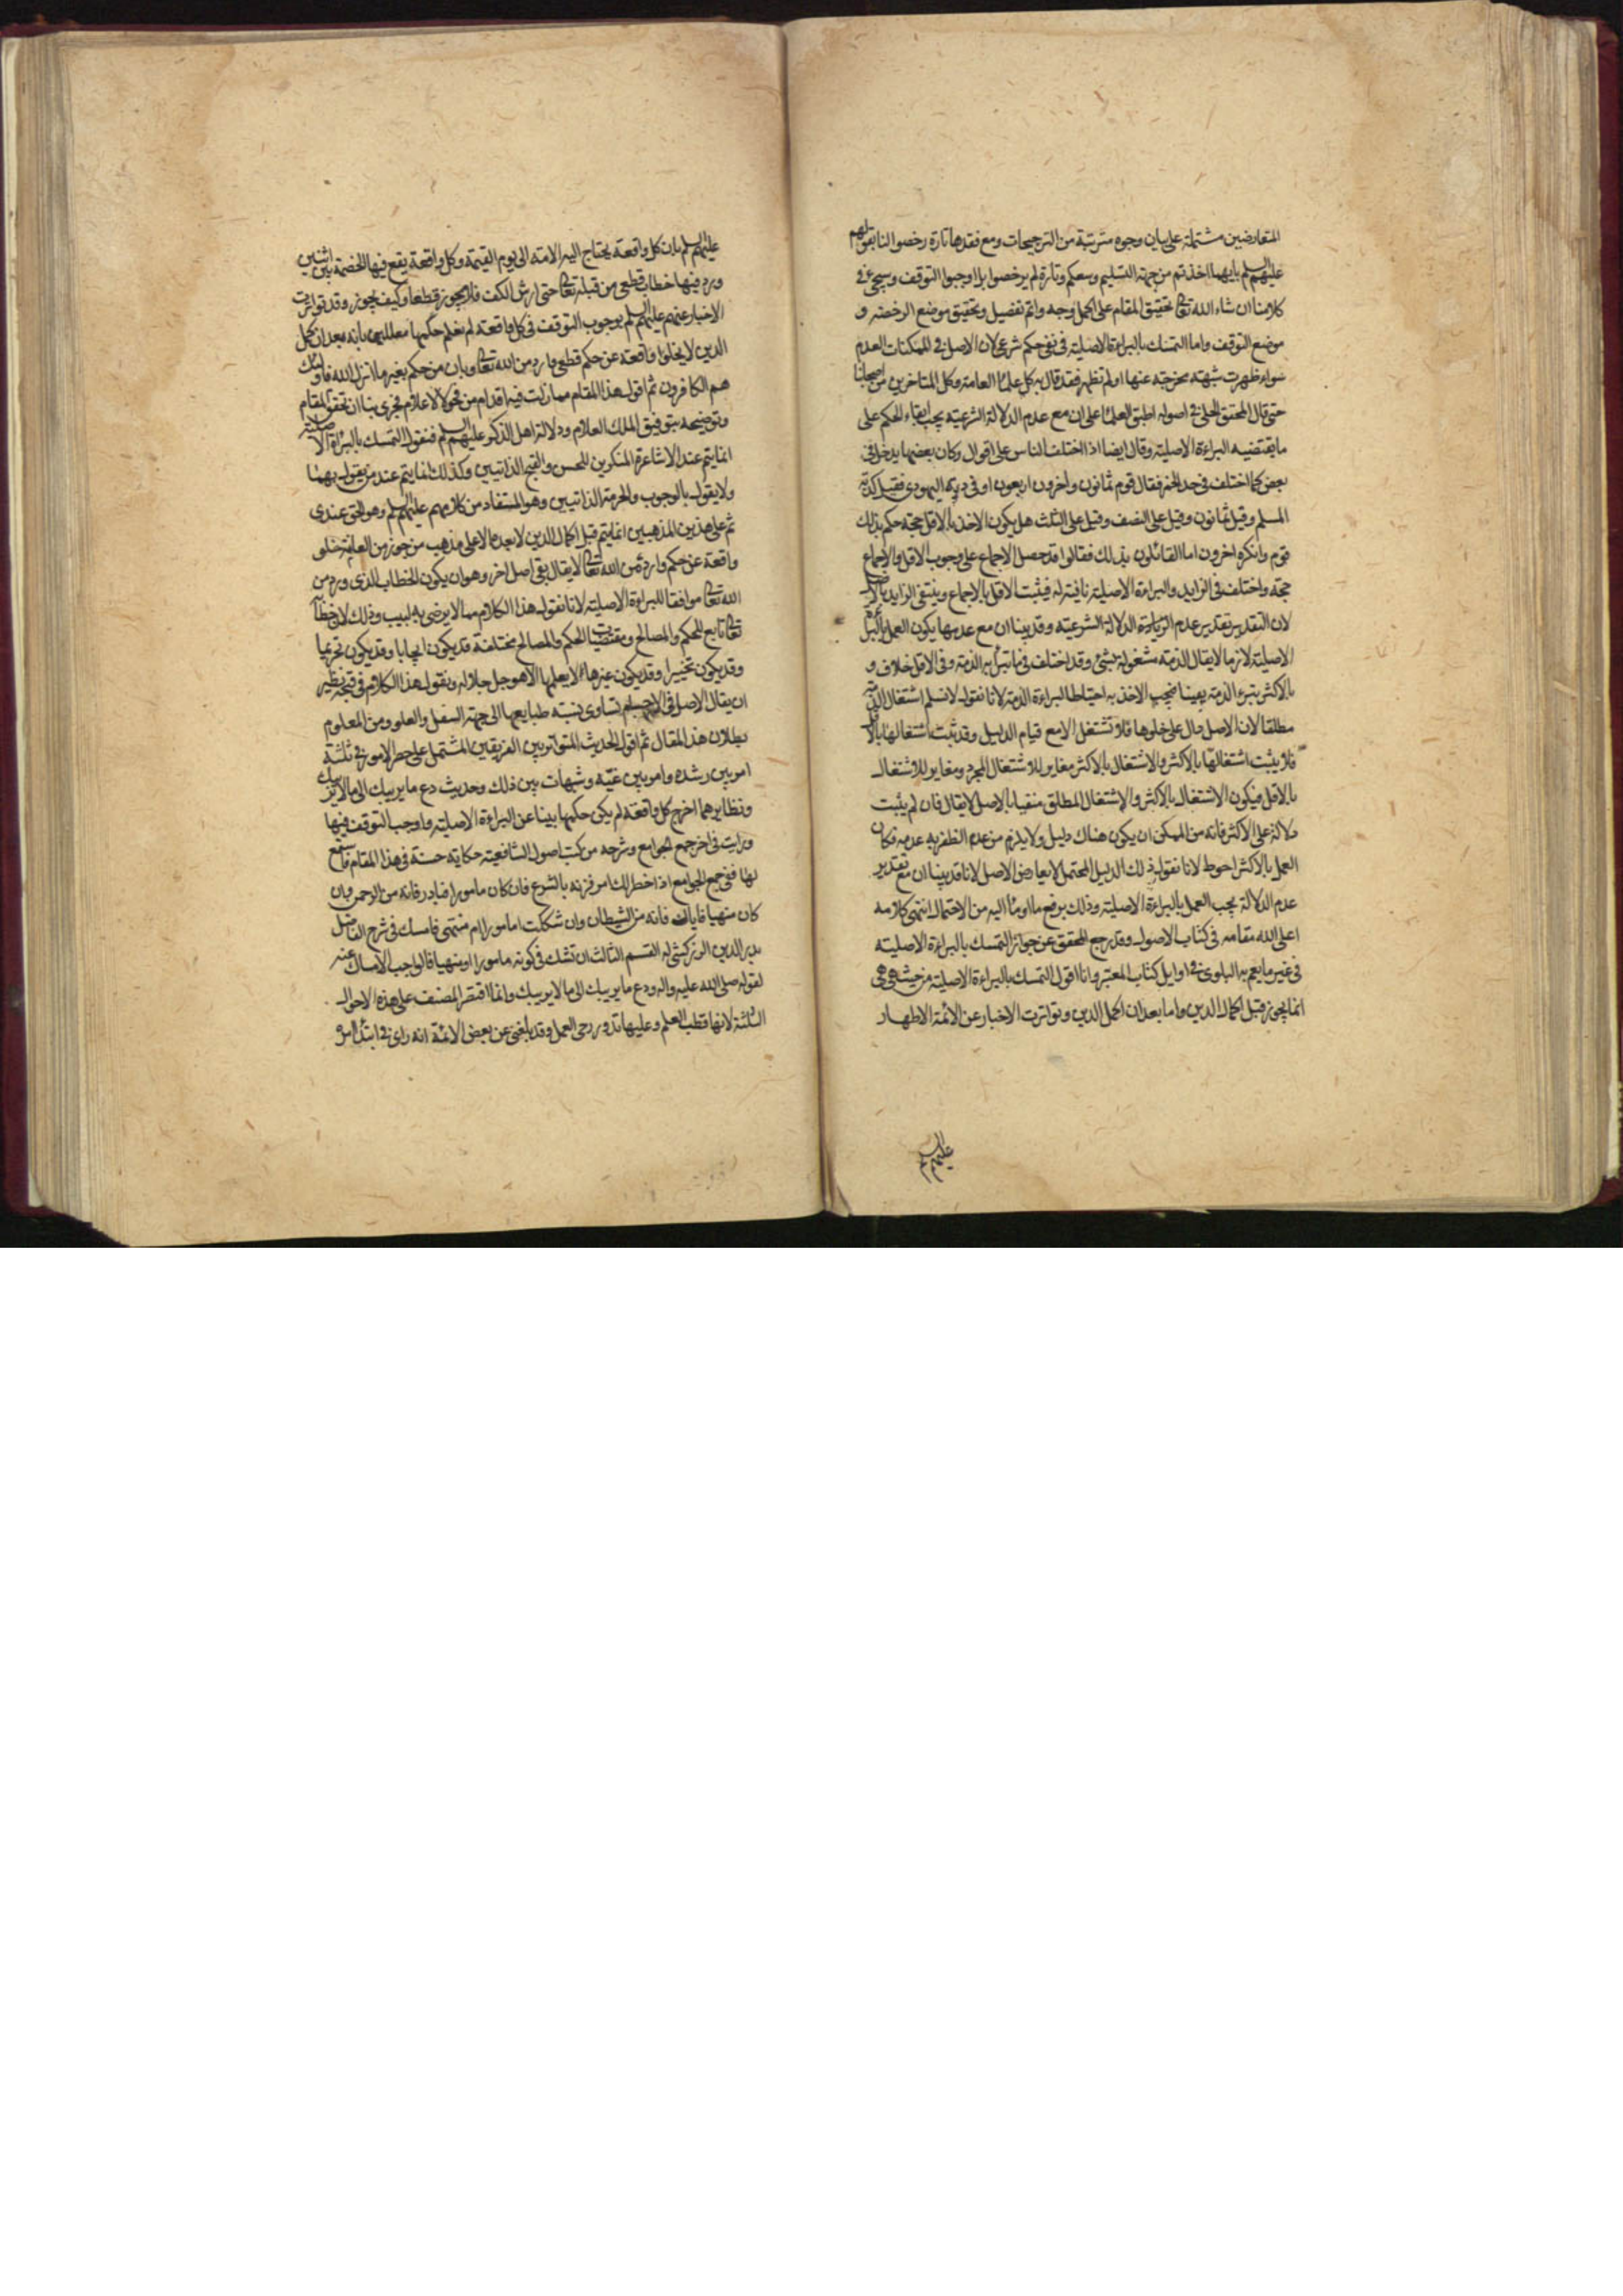 المتعارضين مشتملة على بيان وجوه مترتبة من الترجيحات ومع فقدها تارة رخصوا لنا بقولهم
عليهم السلم بايهما اخذتم من جهة التسليم وسعكم وتارة لم يرخصوا بل اوجبوا التوقف وسيجئ في
كلامنا ان شاء الله تعالى تحقيق المقام على اكمل وجه واتم تفصيل وتحقيق موضع الرخصة و
موضع التوقف واما التمسك بالبراءة الاصلية في نفي حكم شرعي لان الاصل في الممكنات العدم
سواء ظهرت شبهة مخرجة عنها او لم تظهر فقد قال به كل علماء العامة وكل المتاخرين من اصحابنا
حتى قال المحقق الحلي في اصوله اطبق العلماء على ان مع عدم الدلالة الشرعية يجب ابقاء الحكم على
ما يقتضيه البراءة الاصلية وقال ايضا اذا اختلف الناس على اقوال وكان بعضها يدخل في
بعض كما اختلف في حد الخمر فقال قوم ثمانون واخرون اربعون او في دية اليهودي فقيل كدية
المسلم وقيل ثمانون وقيل على النصف وقيل على الثلث هل يكون الاخذ بالاقل حجة حكم بذلك
قوم وانكره اخرون اما القائلون بذلك فقالوا قد حصل الاجماع على وجوب الاقل والاجماع
حجة واختلف في الزايد والبراءة الاصلية نافية له فيثبت الاقل بالاجماع وينتفي الزايد بالاصل
لان التقدير تقدير عدم الزيادة الدلالة الشرعية وقد بينا ان مع عدمها يكون العمل بالبراءة
الاصلية لازما لا يقال الذمة مشغولة بشئ وقد اختلف في ما تبرأ به الذمة وفي الاقل خلاف و
بالاكثر يتبرء الذمة يقينا فيجب الاخذ به احتياطا لبراءة الذمة لانا نقول لا نسلم اشتغال الذمة
مطلقا لان الاصل دال على خلوها فلا تشتغل الا مع قيام الدليل وقد ثبت اشتغالها بالاقل
فلا يثبت اشتغالها بالاكثر والاشتغال بالاكثر مغاير للاشتغال المجرد ومغاير للاشتغال
بالاقل فيكون الاشتغال بالاكثر والاشتغال المطلق منفيا بالاصل لا يقال فان لم يثبت
دلالة على الاكثر فانه من الممكن ان يكون هناك دليل ولا يلزم من عدم الظفر به عدمه فكان
العمل بالاكثر احوط لانا نقول ذلك الدليل المحتمل لا يعارض الاصل لانا قد بينا ان مع تقدير
عدم الدلالة يجب العمل بالبراءة الاصلية وذلك يرفع ما اومأ اليه من الاحتمال انتهى كلامه
اعلى الله مقامه في كتاب الاصول وقد رجع المحقق عن جواز التمسك بالبراءة الاصلية
في غير ما يعم به البلوى في اوايل كتاب المعتبر وانا اقول التمسك بالبراءة الاصلية من حيث هي هي
انما يجوز قبل اكمال الدين واما بعد ان اكمل الدين وتواترت الاخبار عن الائمة الاطهار
عليهم السلم
عليهم السلم بان كل واقعة يحتاج اليه الامة الى يوم القيمة وكل واقعة يقع فيها الخصمة بين اثنين
ورد فيها خطاب قطعي من قبله تعالى حتى ارش الكف فلا يجوز قطعا وكيف يجوز وقد تواترت
الاخبار عنهم عليهم السلم بوجوب التوقف في كل واقعة لم نعلم حكمها معللين بانه بعد ان كمل
الدين لا يخلوا واقعة عن حكم قطعي وارد من الله تعالى وبان من حكم بغير ما انزل الله فاولئك
هم الكافرون ثم اقول هذا المقام مما زلت فيه اقدام من فحول الاعلام فحري بنا ان نحقق المقام
ونوضحه بتوفيق الملك العلام ودلالة اهل الذكر عليهم السلم فنقول التمسك بالبراءة الاصلية
انما يتم عند الاشاعرة المنكرين للحسن والقبح الذاتيين وكذلك انما يتم عند من يقول بهما
ولا يقول بالوجوب والحرمة الذاتيين وهو المستفاد من كلامهم عليهم السلم وهو الحق عندي
ثم على هذين المذهبين انما يتم قبل اكمال الدين لا بعده الا على مذهب من جوز من العامة خلو
واقعة عن حكم وارد من الله تعالى لا يقال بقي اصل اخر وهو ان يكون الخطاب الذي ورد من
الله تعالى موافقا للبراءة الاصلية لانا نقول هذا الكلام مما لا يرضى به لبيب وذلك لان خطابه
تعالى تابع للحكم والمصالح ومقتضيات الحكم والمصالح مختلفة قد يكون ايجابا وقد يكون تحريما
وقد يكون تخييرا وقد يكون غيرها لا يعلمها الا هو جل جلاله ونقول هذا الكلام في قبحه نظير
ان يقال الاصل في الاجسام تساوي نسبة طبايعها الى جهة السفل والعلو ومن المعلوم
بطلان هذا المقال ثم اقول الحديث المتواتر بين الفريقين المشتمل على حصر الامور في ثلثة
امر بين رشده وامر بين غيه وشبهات بين ذلك وحديث دع ما يريبك الى ما لا يريبك
ونظايرهما اخرج كل واقعة لم يكن حكمها بينا عن البراءة الاصلية واوجب التوقف فيها
ورايت في اخر جمع الجوامع وشرحه من كتب اصول الشافعية حكاية حسنة في هذا المقام فاستمع
لها ففي جمع الجوامع اذا خطر لك امر فزنه بالشرع فان كان مامورا فبادر فانه من الرحمن وان
كان منهيا فاياك فانه من الشيطان وان شككت امامورا ام منتهى فامسك في شرح الفاضل
بدر الدين الزركشي له القسم الثالث ان تشك في كونه مامورا او منهيا فالواجب الامساك عنه
لقوله صلى الله عليه واله ودع ما يريبك الى ما لا يريبك وانما اقتصر المصنف على هذه الاحوال
الثلثة لانها قطب العلم وعليها تدور رحى العمل وقد بلغني عن بعض الائمة انه راى في ابتداء امره